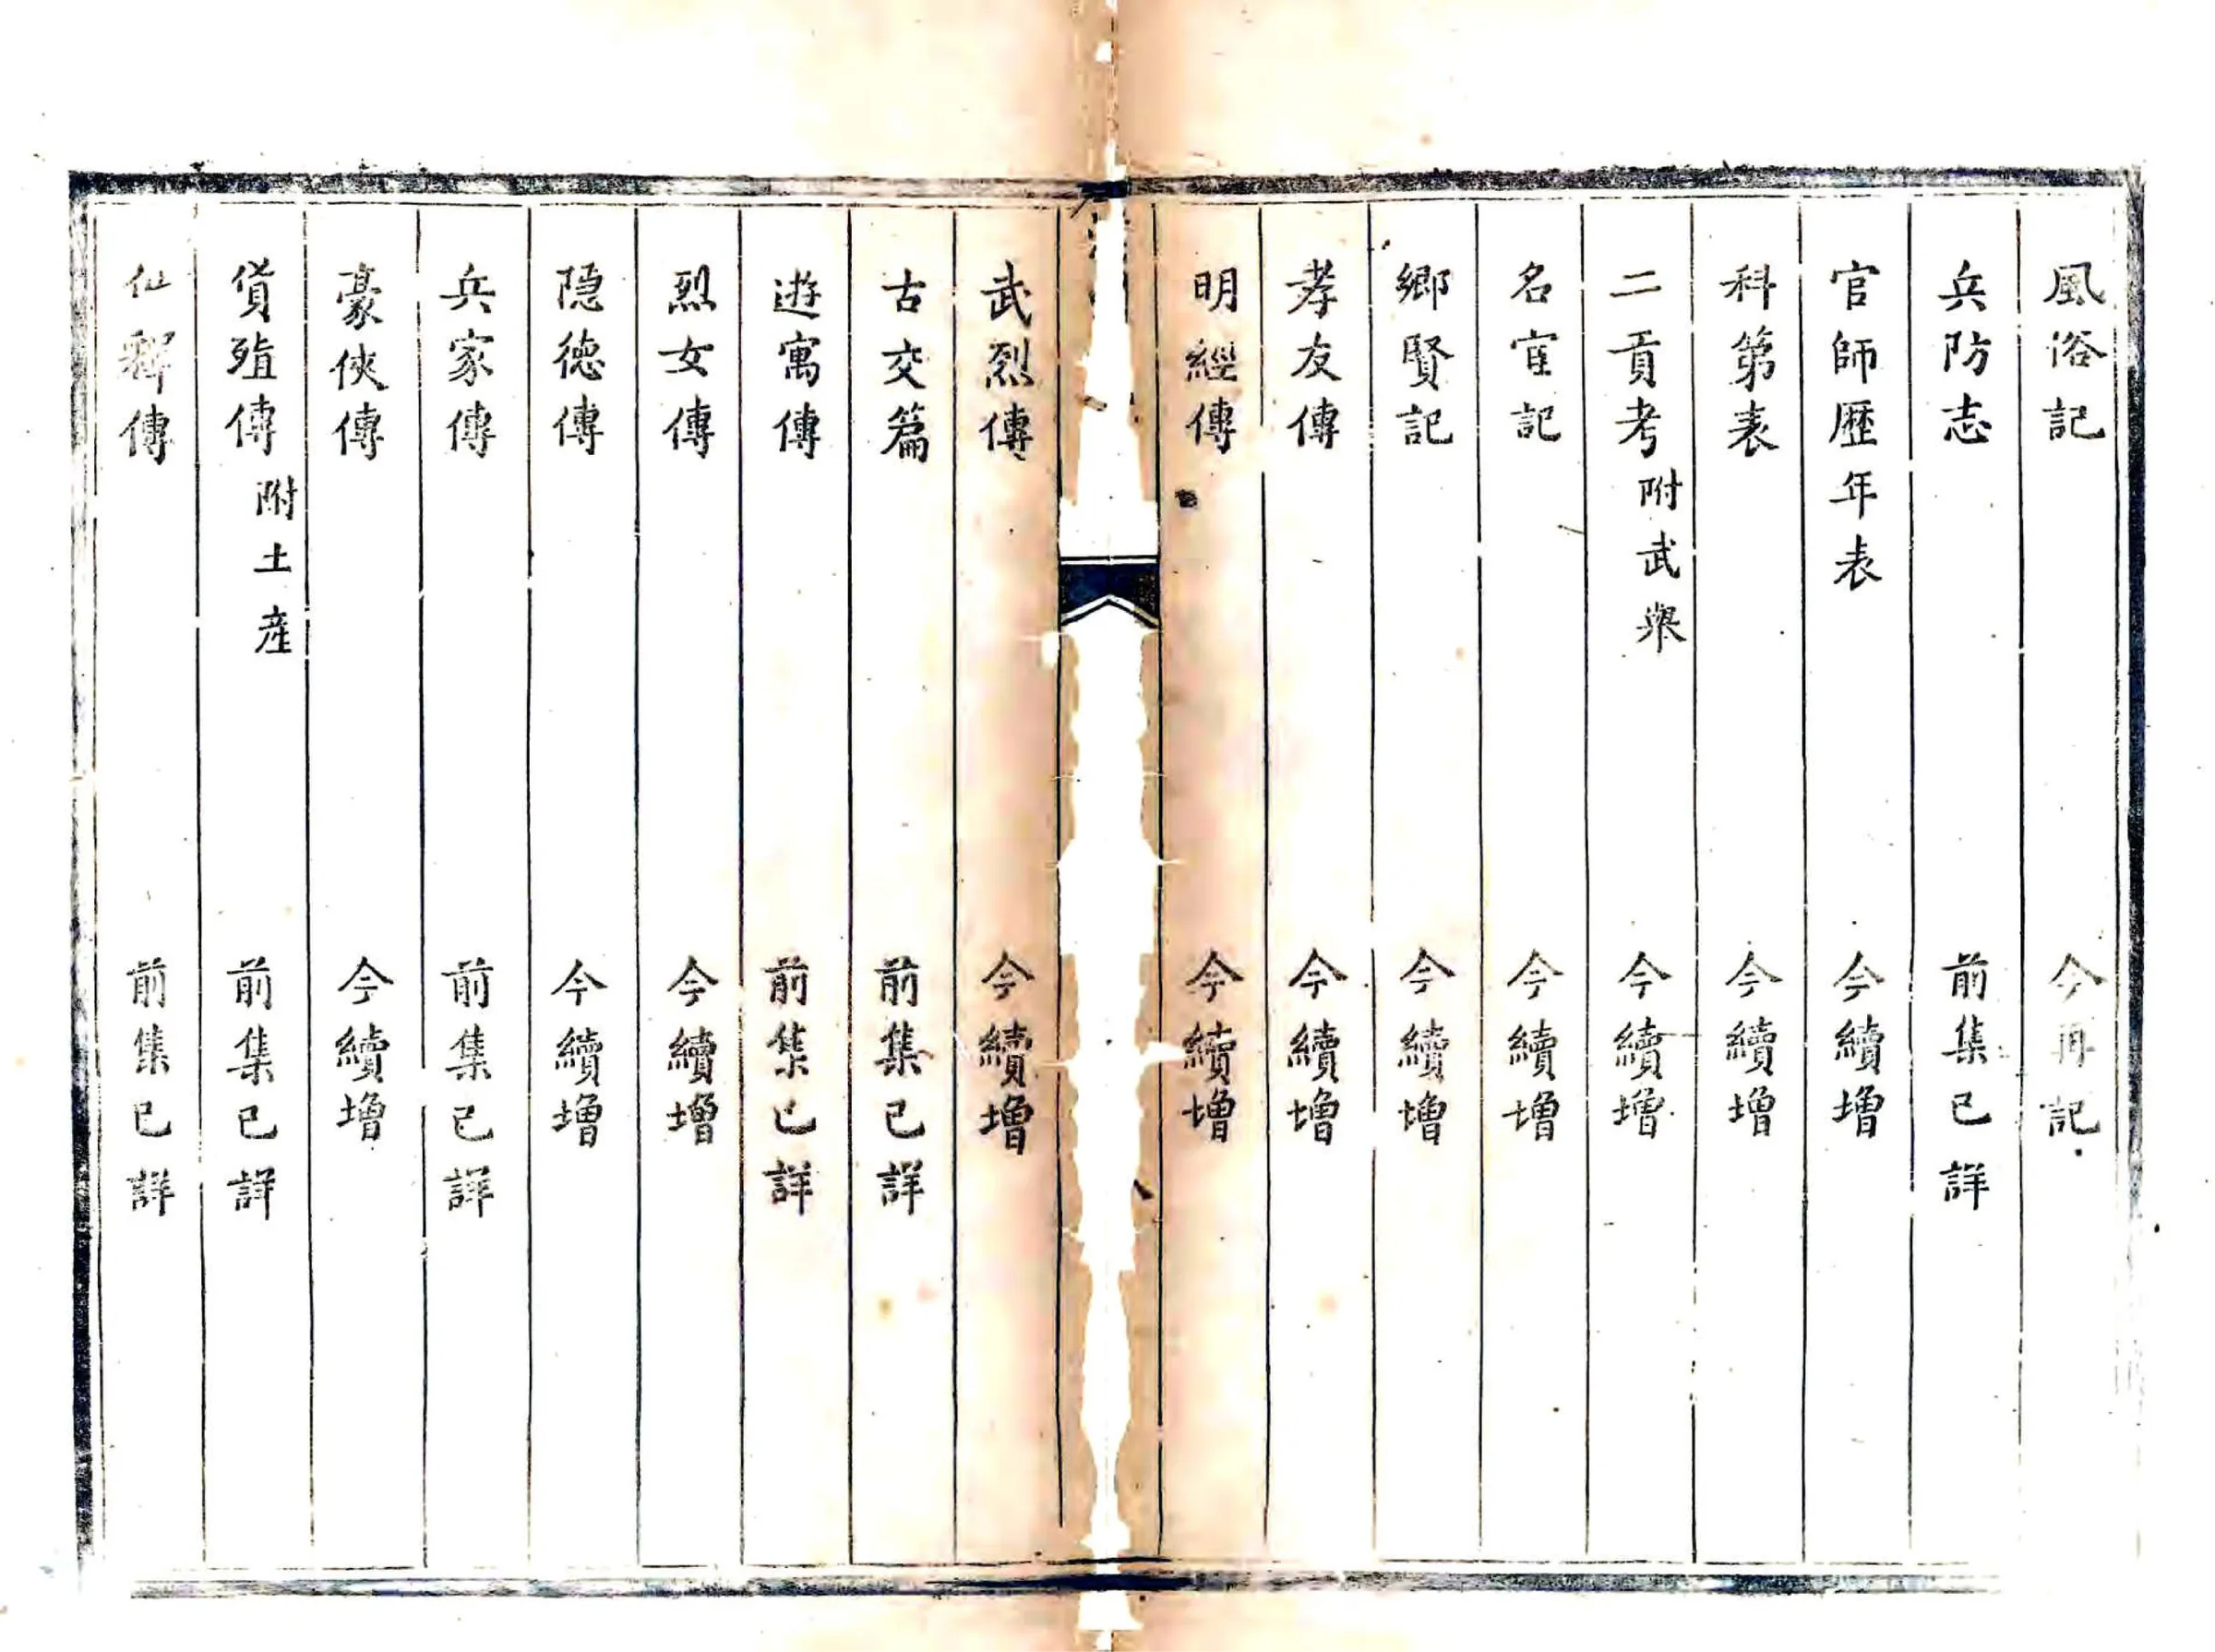 風俗記 今再記
兵防志 前集已詳
官師歴年表 今續增
科第表 今續增
二貢考 附武舉 今續增
名宦記 今續增
鄉賢記 今續增
孝友傳 今續增
明經傳 今續增
武烈傳 今續增
古交篇 前集已詳
遊寓傳 前集已詳
烈女傳 今續增
隐徳傳 今續增
兵家傳 前集已詳
豪俠傳 今續增
貨殖傳 附土産 前集已詳
仙釋傳 前集已詳